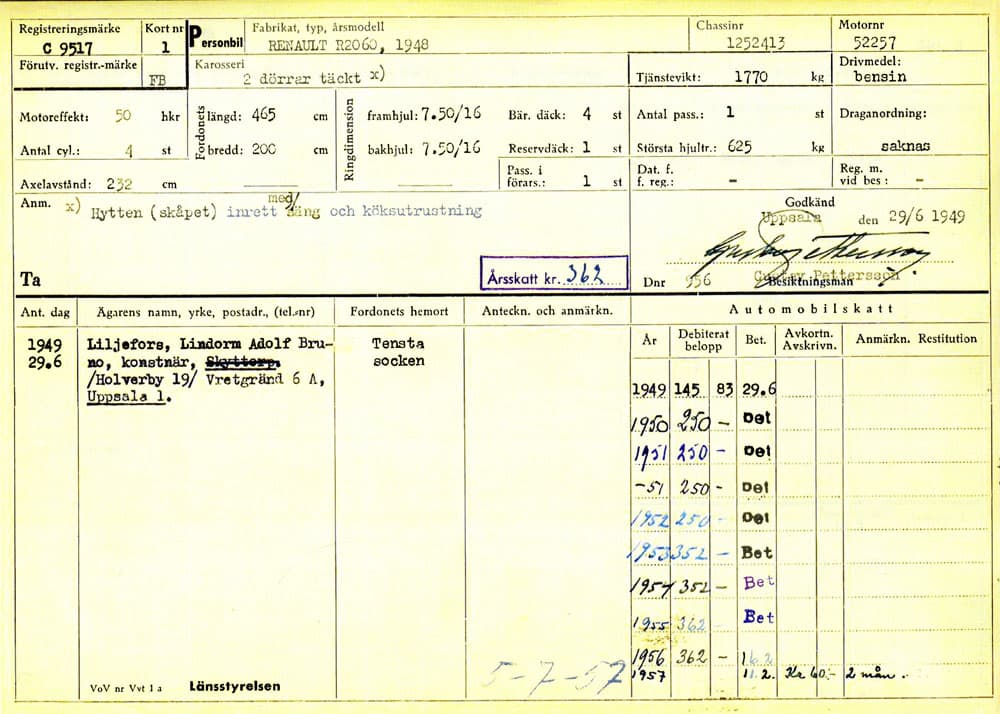 Registreringsmärke Kort nr Personbil Fabrikat, typ, årsmodell Chassinr Motornr
C 9517 1 RENAULT R2060, 1948 1252413 52257
Förutv. registr.-märke FB Karosseri 2 dörrar täckt x) Tjänstevikt: 1770 kg Drivmedel: bensin
Motoreffekt: 50 hkr Fordonets längd: 465 cm Ringdimension framhjul: 7.50/16 Bär. däck: 4 st Antal pass.: 1 st Draganordning:
Antal cyl.: 4 st bredd: 200 cm bakhjul: 7.50/16 Reservdäck: 1 st Största hjultr.: 625 kg saknas
Axelavstånd: 232 cm Pass. i förars.: 1 st Dat. f. f. reg.: - Reg. m. vid bes: -
Anm. x) Hytten (skåpet) inrett med/ säng och köksutrustning
Godkänd
Uppsala den 29/6 1949
Gustav Pettersson
Ta Årsskatt kr. 362 Dnr 956 Besiktningsman
Ant. dag Ägarens namn, yrke, postadr., (tel.-nr) Fordonets hemort Anteckn. och anmärkn. Automobilskatt
År Debiterat belopp Bet. Avkortn. Avskrivn. Anmärkn. Restitution
1949 Liljefors, Lindorm Adolf Bru- Tensta
29.6 no, konstnär, Skyttorp. socken
/Holverby 19/ Vretgränd 6 A,
Uppsala 1.
1949 145 83 29.6
1950 250 - Bet
1951 250 - Bet
-51 250 - Bet
1952 250 - Bet
1953 352 - Bet
1954 352 - Bet
1955 362 - Bet
1956 362 - 16.2
1957 11.2. Kr 60:- 2 mån.
5-7-57
VoV nr Vvt 1 a Länsstyrelsen